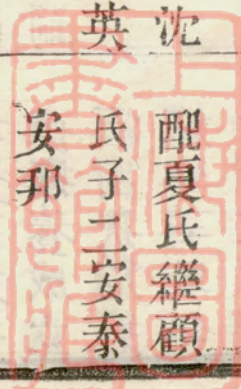 沈英
配夏氏繼顧
氏子二安泰
安邦